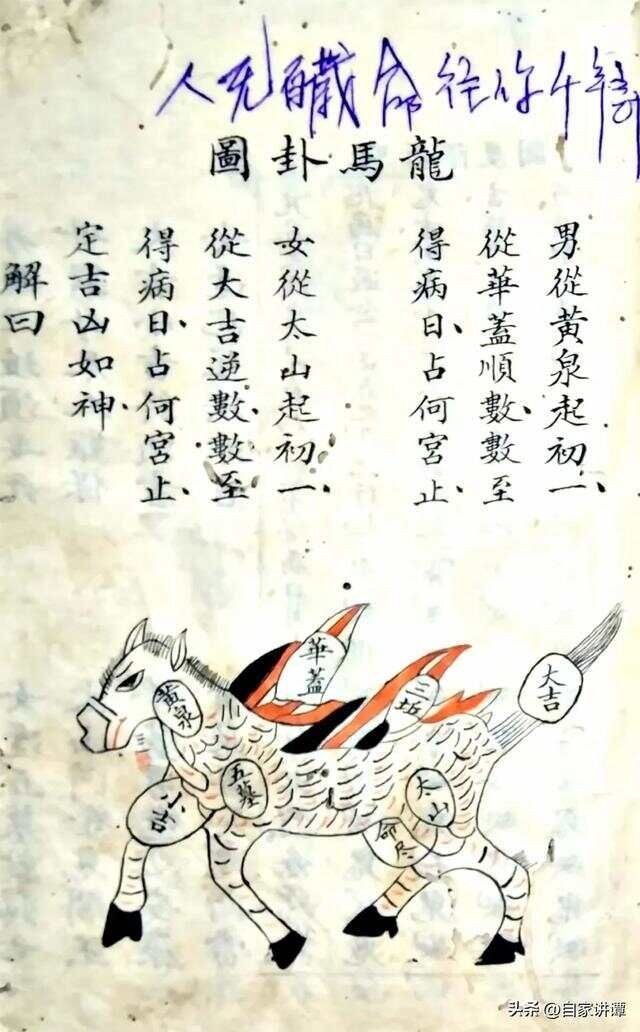 龍馬卦圖
男從黃泉起初一、
從華蓋順數、數至
得病日、占何宮止、
女從太山起初一、
從大吉逆數、數至
得病日、占何宮止、
定吉凶如神、
解曰
華蓋
大吉
三坵
黃泉
五墓
太山
小吉
命尽
头条 @自家讲谭